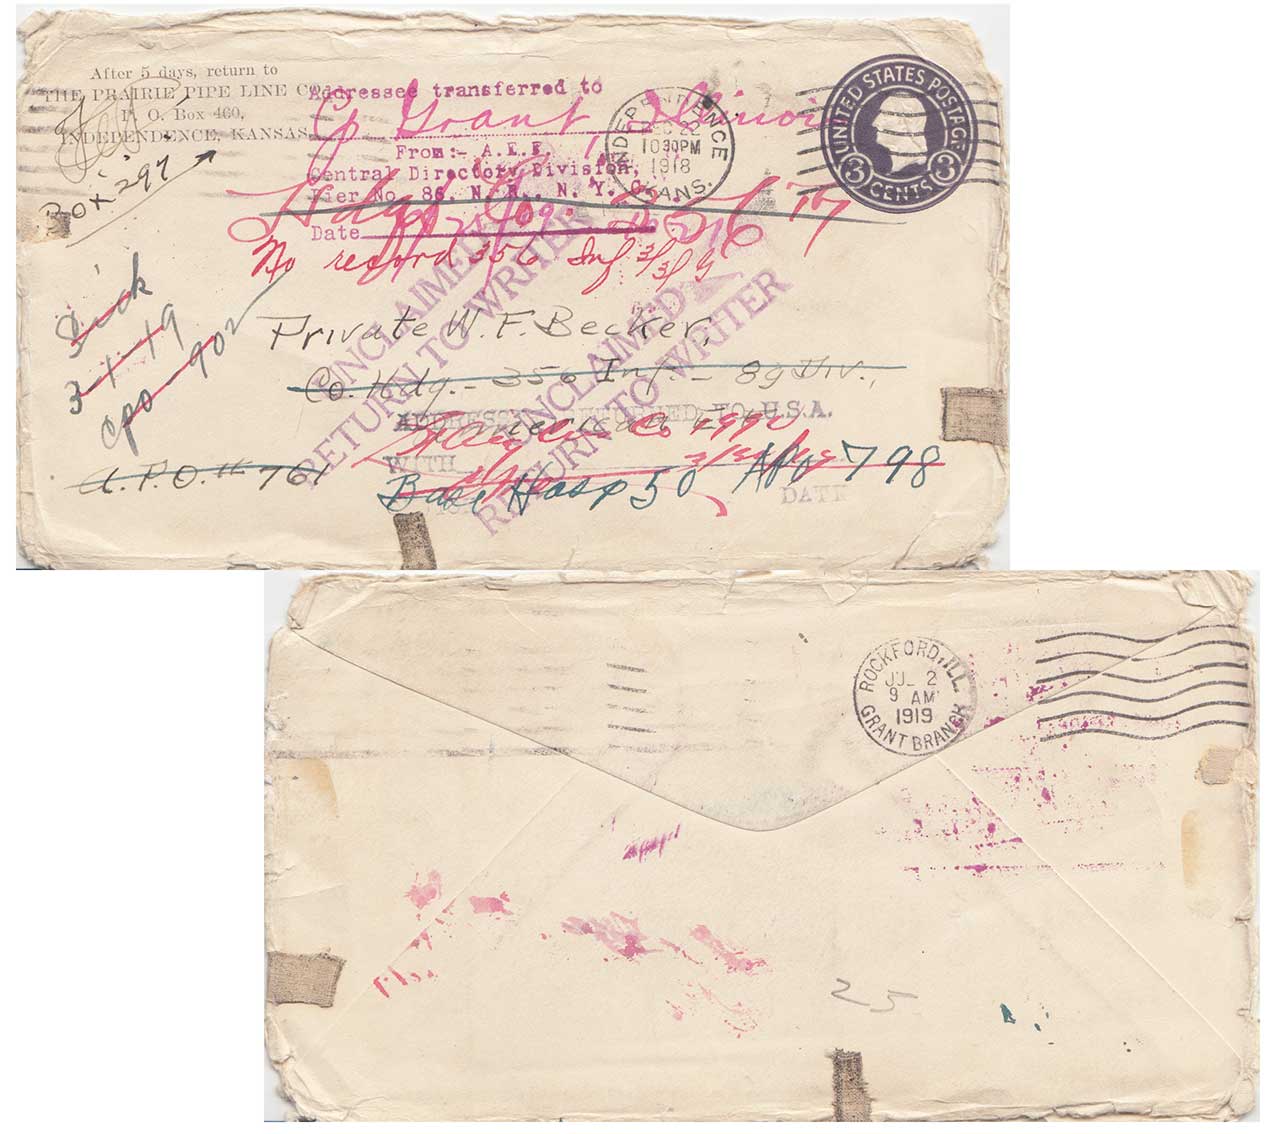 After 5 days, return to
THE PRAIRIE PIPE LINE CO.
P. O. Box 460,
INDEPENDENCE, KANSAS
Box 297
Addressee transferred to
Cp Grant, Illinois
From:- A.E.F.
Central Directory Division,
Pier No. 86, N. R., N. Y. C.
Date
INDEPENDENCE
DEC 22
10 30PM
1918
KANS.
UNITED STATES POSTAGE
3 CENTS 3
No record 356 Inf 3/3/19
UNCLAIMED
RETURN TO WRITER
UNCLAIMED
RETURN TO WRITER
Sick
3-1-19
cpo-902
Private W. F. Becker,
Co. Hdq.- 356 Inf. - 89 Div.,
ADDRESSEE RETURNED TO U.S.A.
American E. F.
WITH
A.P.O. # 761
Base Hosp 50 APO 798
DATE
ROCKFORD, ILL.
JUL 2
9 AM
1919
GRANT BRANCH
25